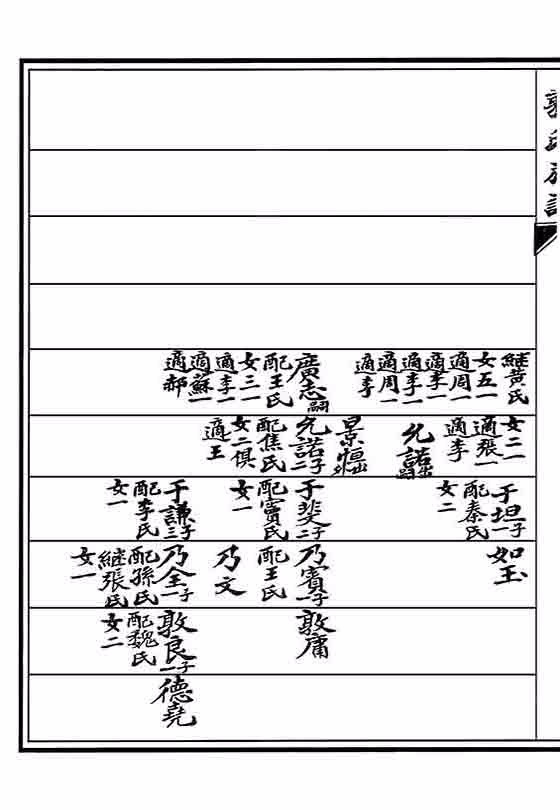 郭氏族譜
継黃氏
女五一
適周一
適李一
適李一
適周一
適李
廣志嗣
配王氏
女三一
適李一
適蘇一
適郝
女二一
適張一
適李
允諾出嗣
景福出外
允諾二子
配焦氏
女二俱
適王
于坦一子
配秦氏
女二
于斐二子
配竇氏
女一
于謙三子
配李氏
女一
如玉
乃賓一子
配王氏
乃文
乃全一子
配孫氏
継張氏
女一
敦庸
敦良一子
配魏氏
女二
德堯